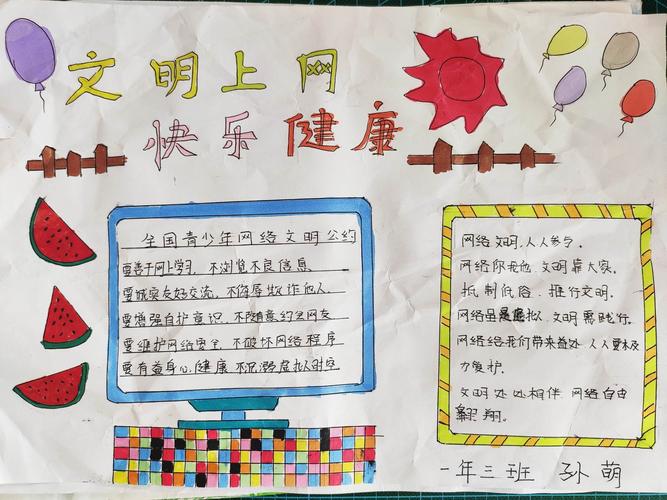 文明上网
快乐健康
全国青少年网络文明公约
要善于网上学习，不浏览不良信息。
要诚实友好交流，不侮辱欺诈他人，
要增强自护意识，不随意约会网友
要维护网络安全，不破坏网络秩序
要有益身心健康，不沉溺虚拟时空
网络文明，人人参与。
网络你我他，文明靠大家。
抵制低俗，推行文明。
网络是虚拟，文明需践行。
网络给我们带来益处，人人要
力爱护。
文明处处相伴，网络自由
翱翔。
一年三班 孙萌